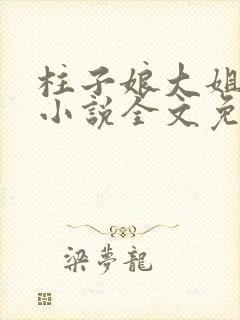 柱子娘大姐
小説全文免
梁夢龍